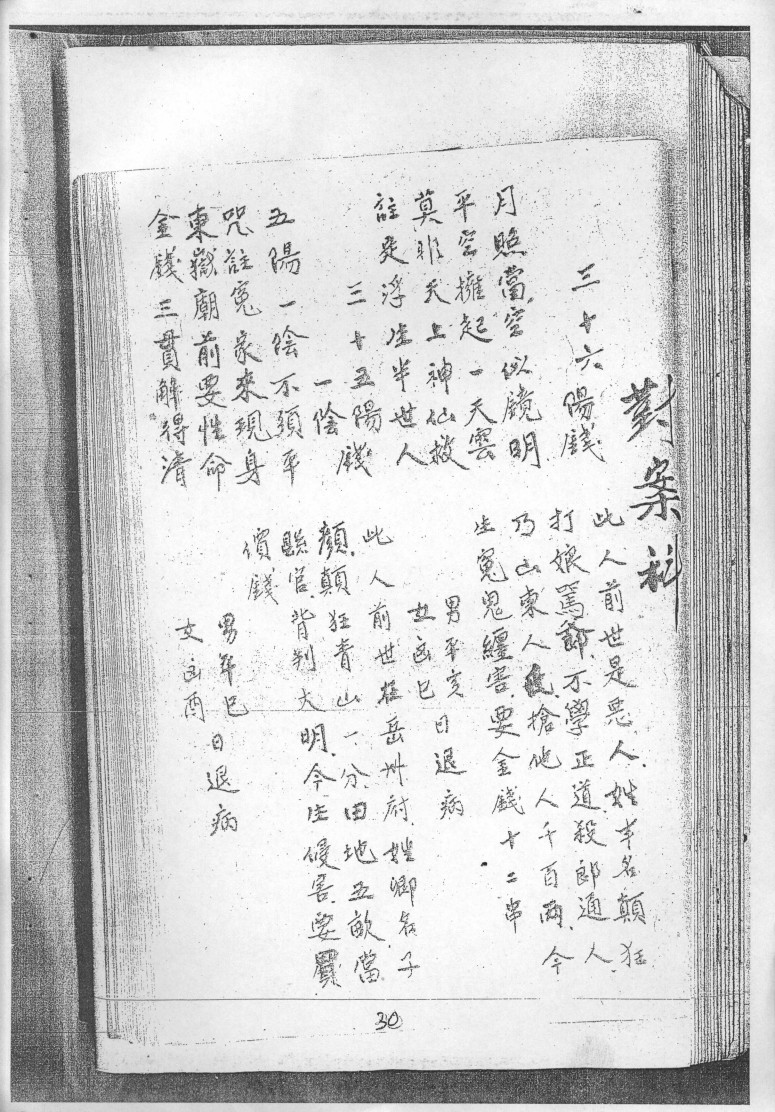 對案科
三十六陽錢
月照當空似鏡明
平空擁起一天雲
莫非天上神仙救
註定浮生半世人
三十五陽錢
一陰錢
五陽一陰不須平
咒註冤家來現身
東嶽廟前要性命
金錢三貫解得清
此人前世是惡人姓車名顛狂
打娘罵爺不學正道殺郎通人
乃山東人搶他人千百兩今
生冤鬼纏害要金錢十二串
男平亥日退病
女凶巳
此人前世在岳州府姓鄉名子
顏顛狂青山一分田地五畝當
縣官背判大明今生侵害要買
償錢
男年巳日退病
女凶酉
30